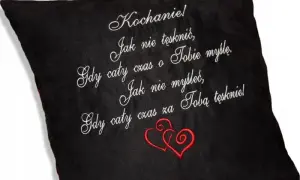 Kochanie!
Jak nie tęsknić,
Gdy cały czas o Tobie myślę.
Jak nie myśleć,
Gdy cały czas za Tobą tęsknie!